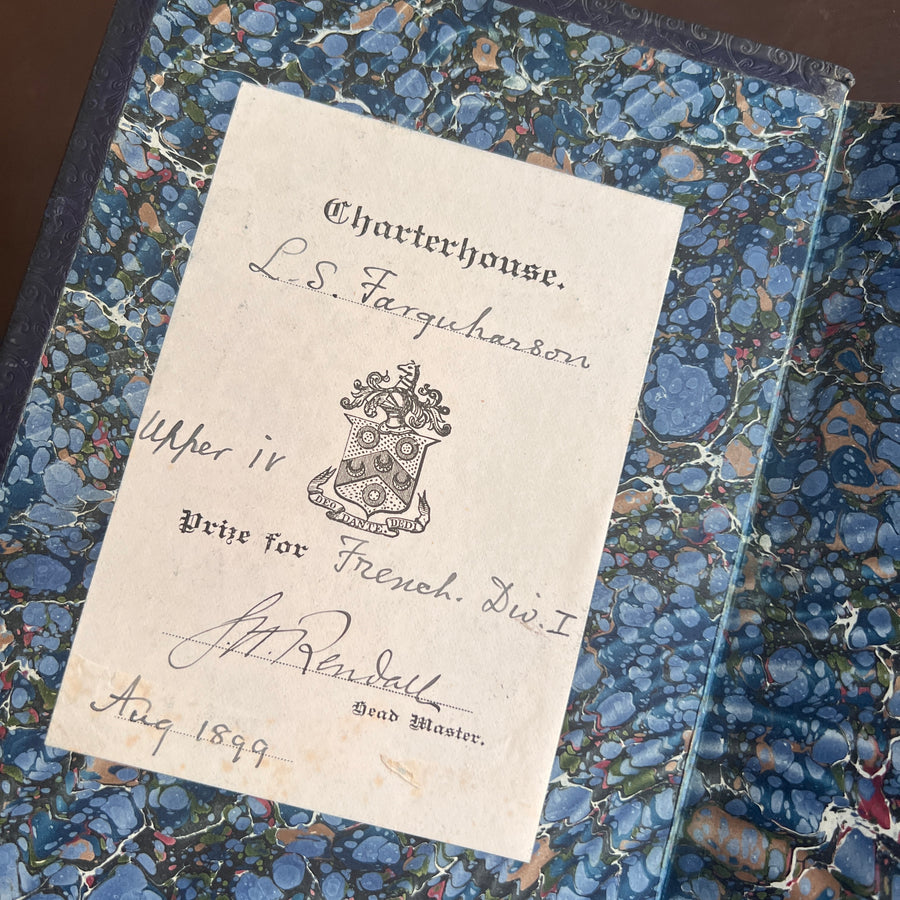 Charterhouse.
L. S. Farquharson
Upper iv
DEO DANTE DEDI
Prize for French. Div. I
G. H. Rendall
Head Master.
Aug 1899